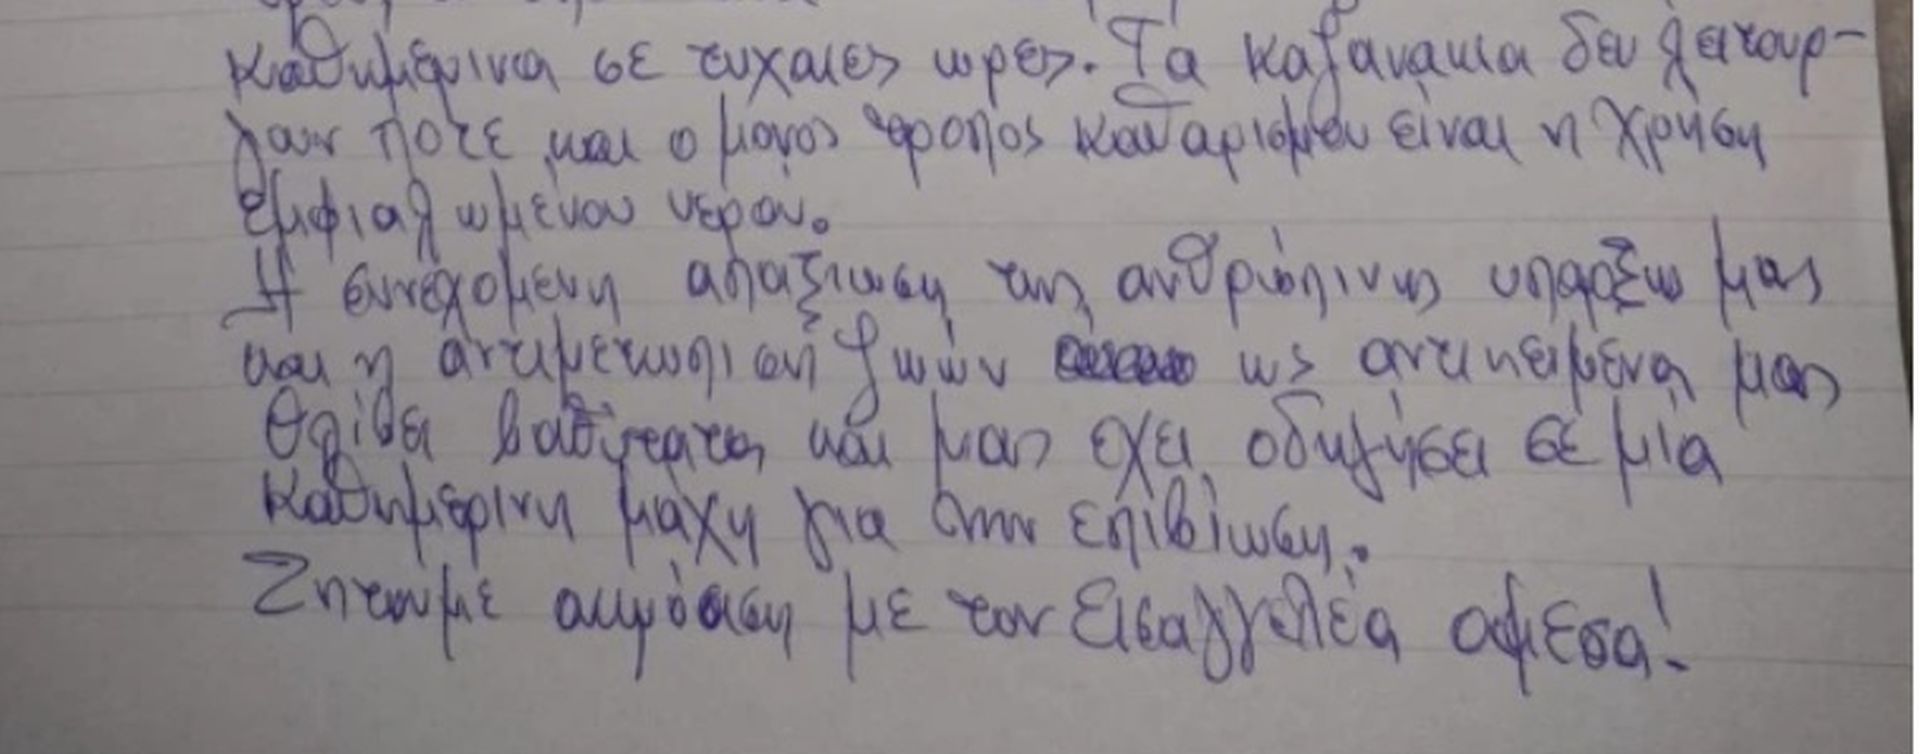 καθημερινα σε τυχαιες ωρες. Τα καζανακια δεν λειτουρ-
γουν ποτε και ο μονος τροπος καθαρισμου είναι η χρήση
εμφιαλωμένου νερού.
Η συνεχομενη απαξιωση της ανθρώπινης υπαρξης μας
και η αντιμετωπιση ζωών ως αντικειμενα μας
θλίβει βαθύτατα και μας εχει οδηγήσει σε μία
καθημερινη μάχη για την επιβίωση.
Ζητουμε ακρόαση με τον Εισαγγελέα αμεσα!